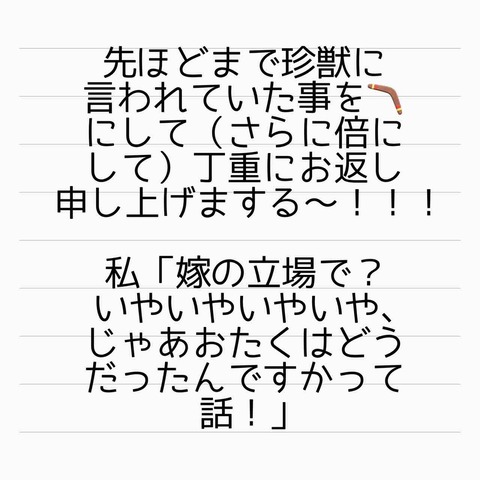 先ほどまで珍獣に
言われていた事を🪃
にして（さらに倍に
して）丁重にお返し
申し上げまする〜！！！
私「嫁の立場で？
いやいやいやいや、
じゃあおたくはどう
だったんですかって
話！」